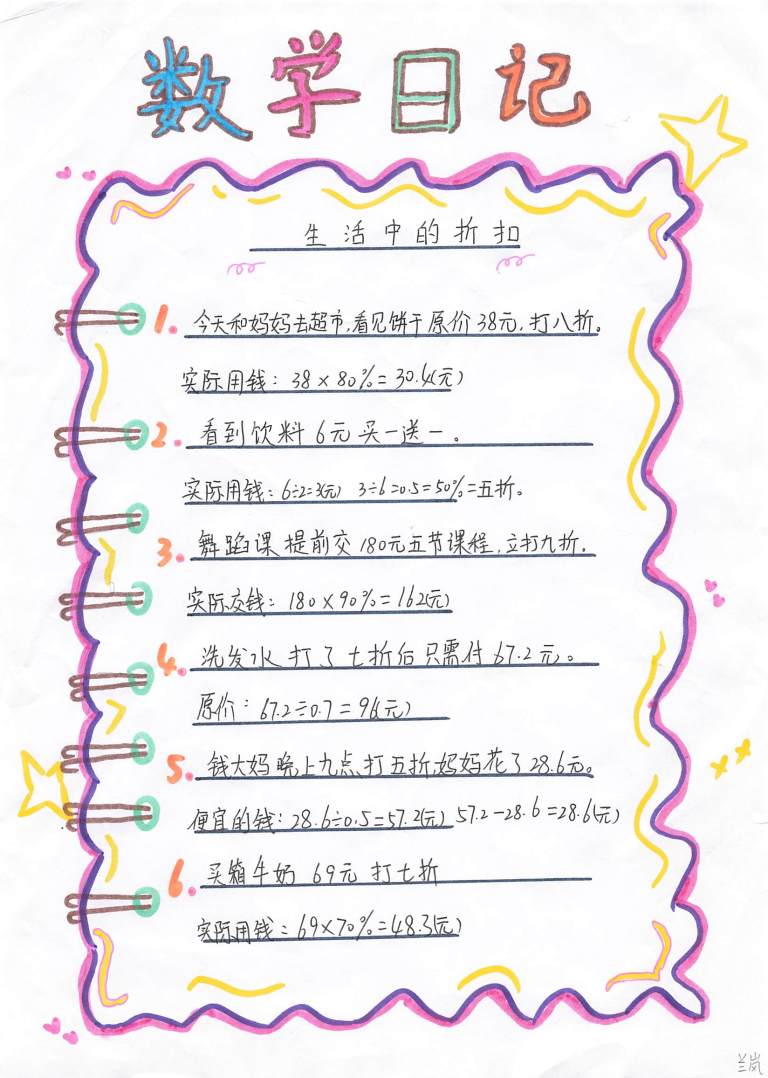 数学日记
生活中的折扣
1. 今天和妈妈去超市,看见饼干原价38元,打八折。
实际用钱: 38×80%=30.4(元)
2. 看到饮料6元买一送一。
实际用钱: 6÷2=3(元) 3÷6=0.5=50%=五折。
3. 舞蹈课提前交180元五节课程,立打九折。
实际交钱: 180×90%=162(元)
4. 洗发水打了七折后只需付67.2元。
原价: 67.2÷0.7=96(元)
5. 钱大妈晚上九点打五折,妈妈花了28.6元。
便宜的钱: 28.6÷0.5=57.2(元) 57.2-28.6=28.6(元)
6. 买箱牛奶 69元 打七折
实际用钱: 69×70%=48.3(元)
兰岚